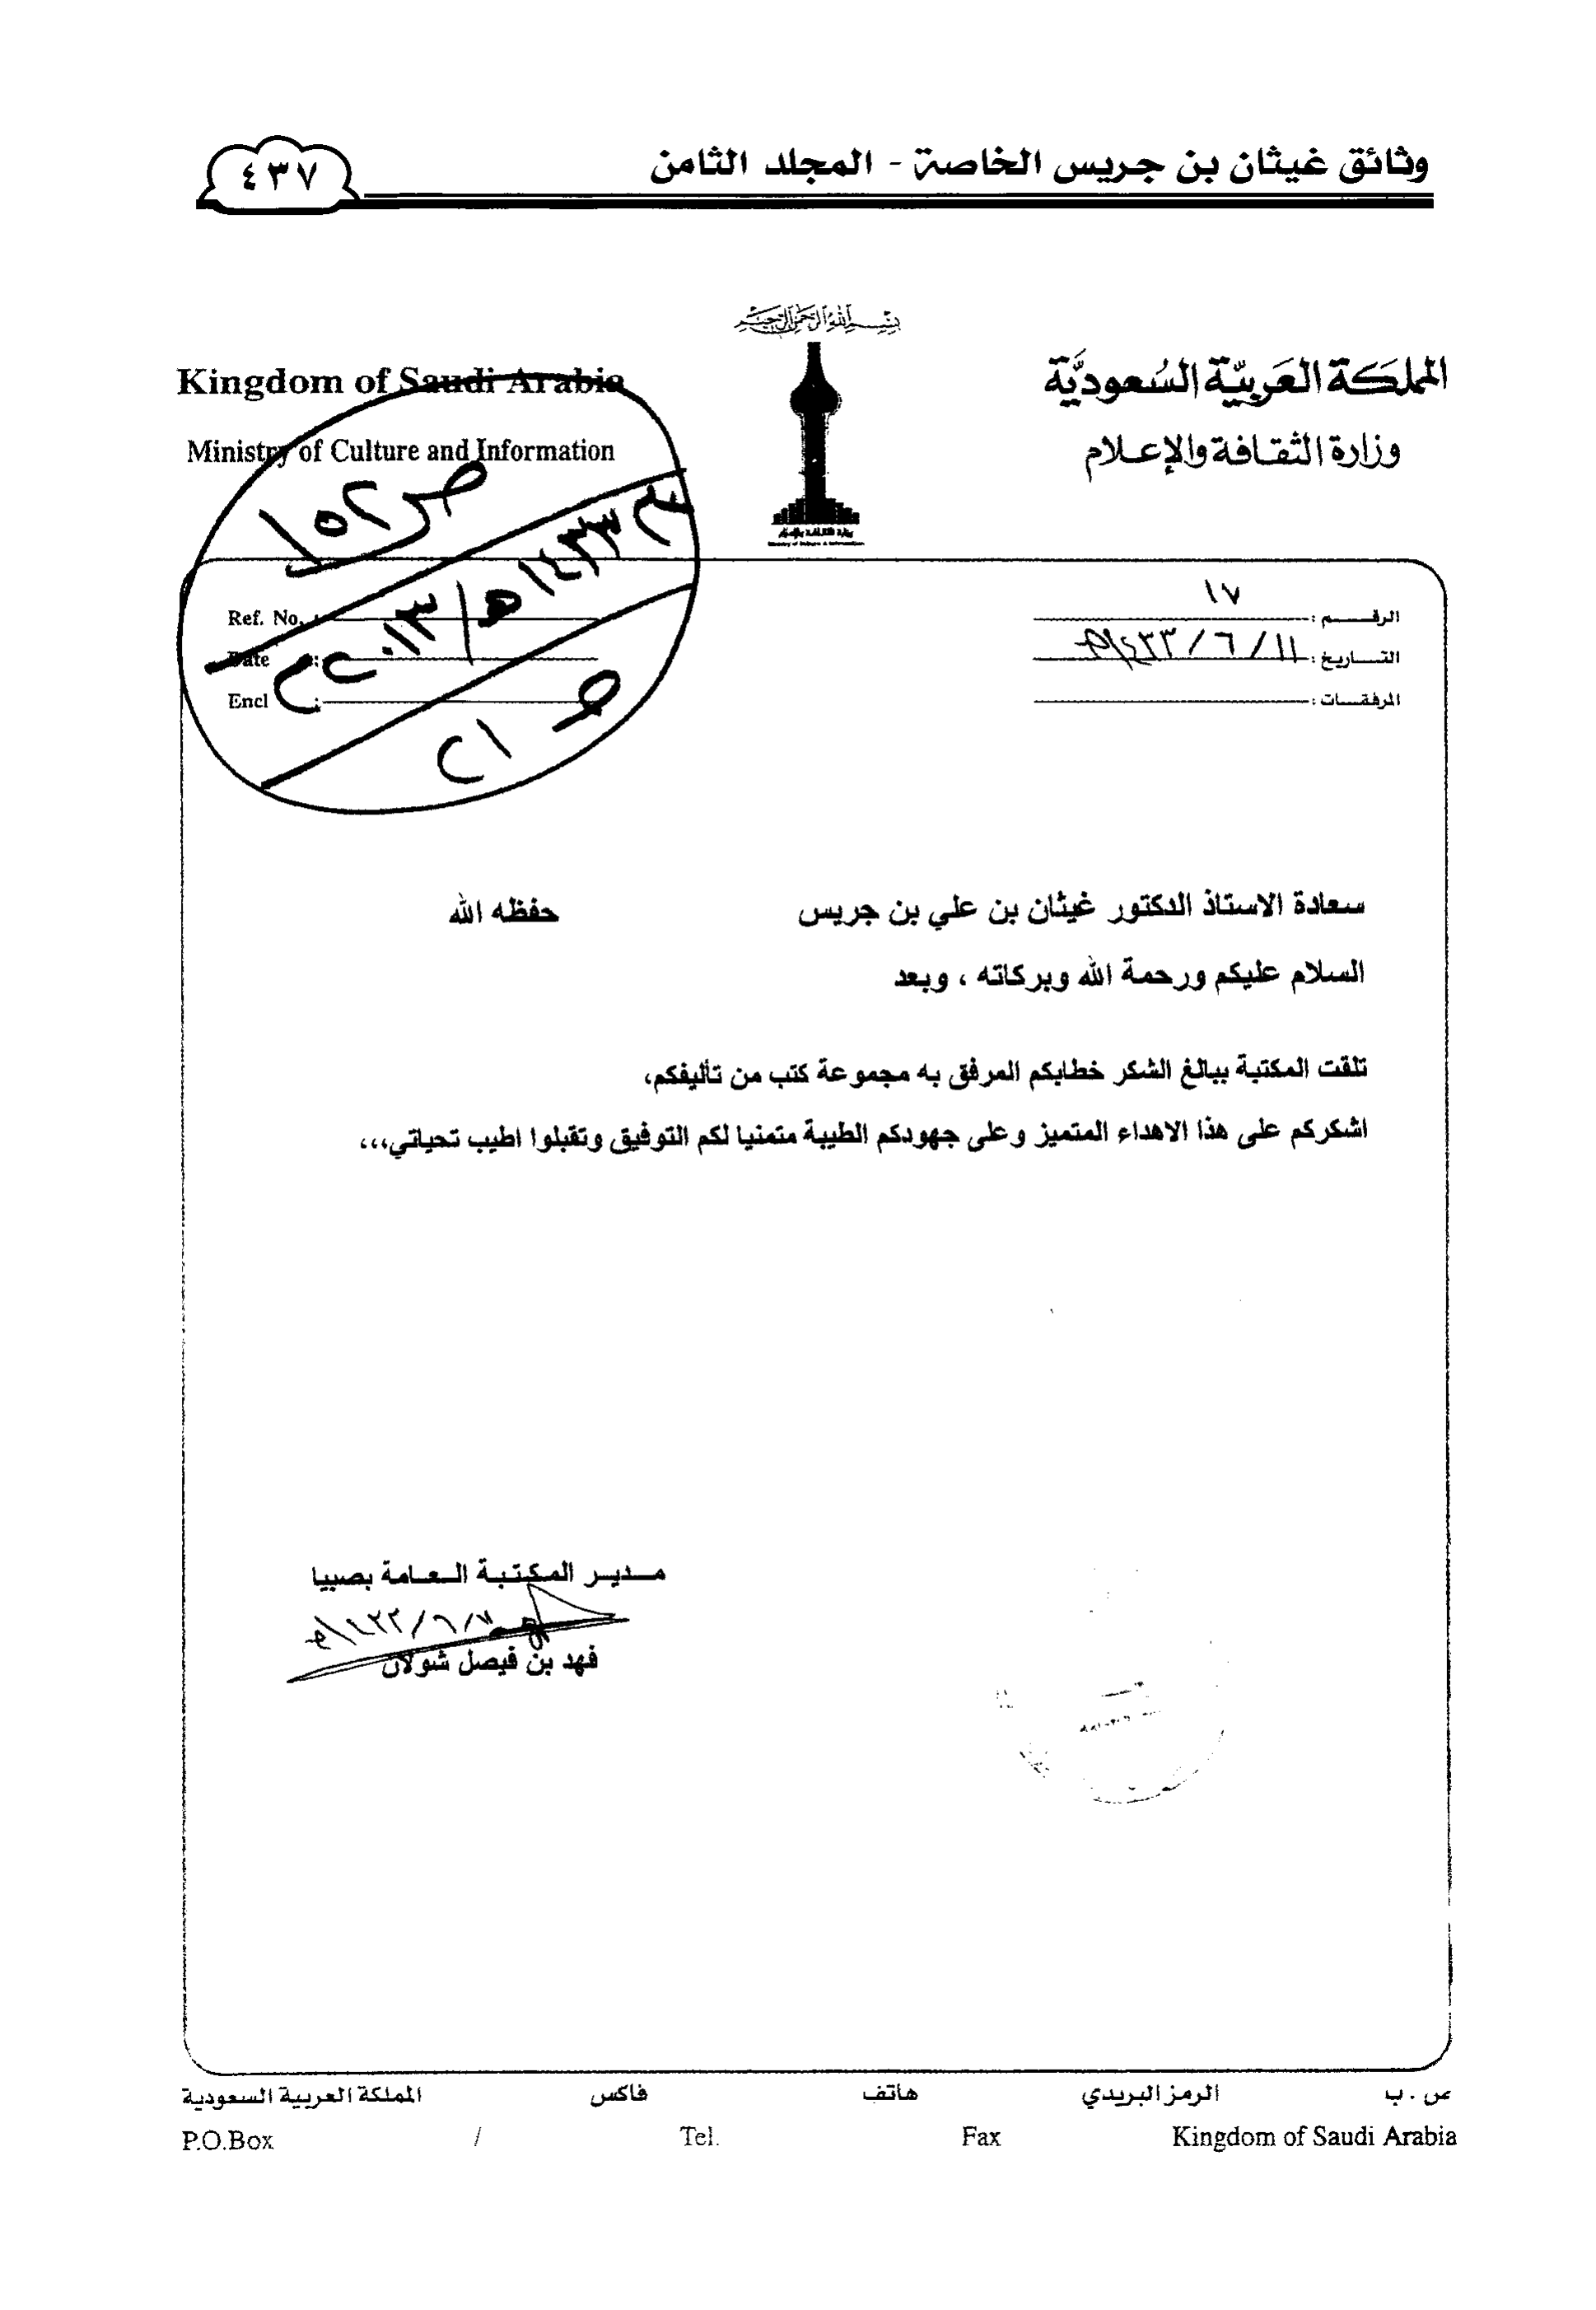 وثائق غيثان بن جريس الخاصة - المجلد الثامن
٤٣٧
بسم الله الرحمن الرحيم
المملكة العربية السعودية
وزارة الثقافة والإعلام
Kingdom of Saudi Arabia
Ministry of Culture and Information
وزارة الثقافة والإعلام
Ministry of Culture & Information
ص ١٥٢
١٤٣٣هـ/٢٠١٣م
ص ٢١
الرقـــم : ١٧
التـــاريخ : ١١/ ٦ / ١٤٣٣هـ
المرفقـــات :
Ref. No. :
Date :
Encl :
سعادة الاستاذ الدكتور غيثان بن علي بن جريس حفظه الله
السلام عليكم ورحمة الله وبركاته ، وبعد
تلقت المكتبة ببالغ الشكر خطابكم المرفق به مجموعة كتب من تأليفكم،
اشكركم على هذا الاهداء المتميز وعلى جهودكم الطيبة متمنيا لكم التوفيق وتقبلوا اطيب تحياتي،،،
مـدير المكتبة الـعامة بصبيا
فهد بن فيصل شولان
ص . ب الرمز البريدي هاتف فاكس المملكة العربية السعودية
P.O.Box / Tel. Fax Kingdom of Saudi Arabia